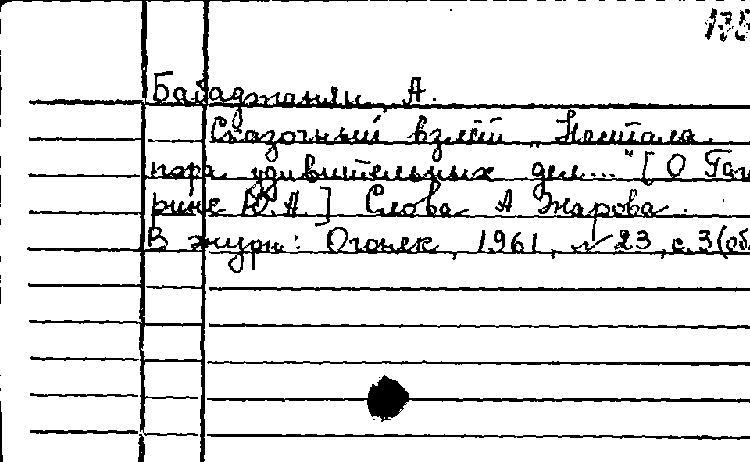 Бабаджанян, А.
Сказочный взлёт „Настала
пора удивительных дел..." [О Гага
рине Ю.А.] Слова А Жарова.
В журн: Огонек, 1961, № 23, с. 3 (об